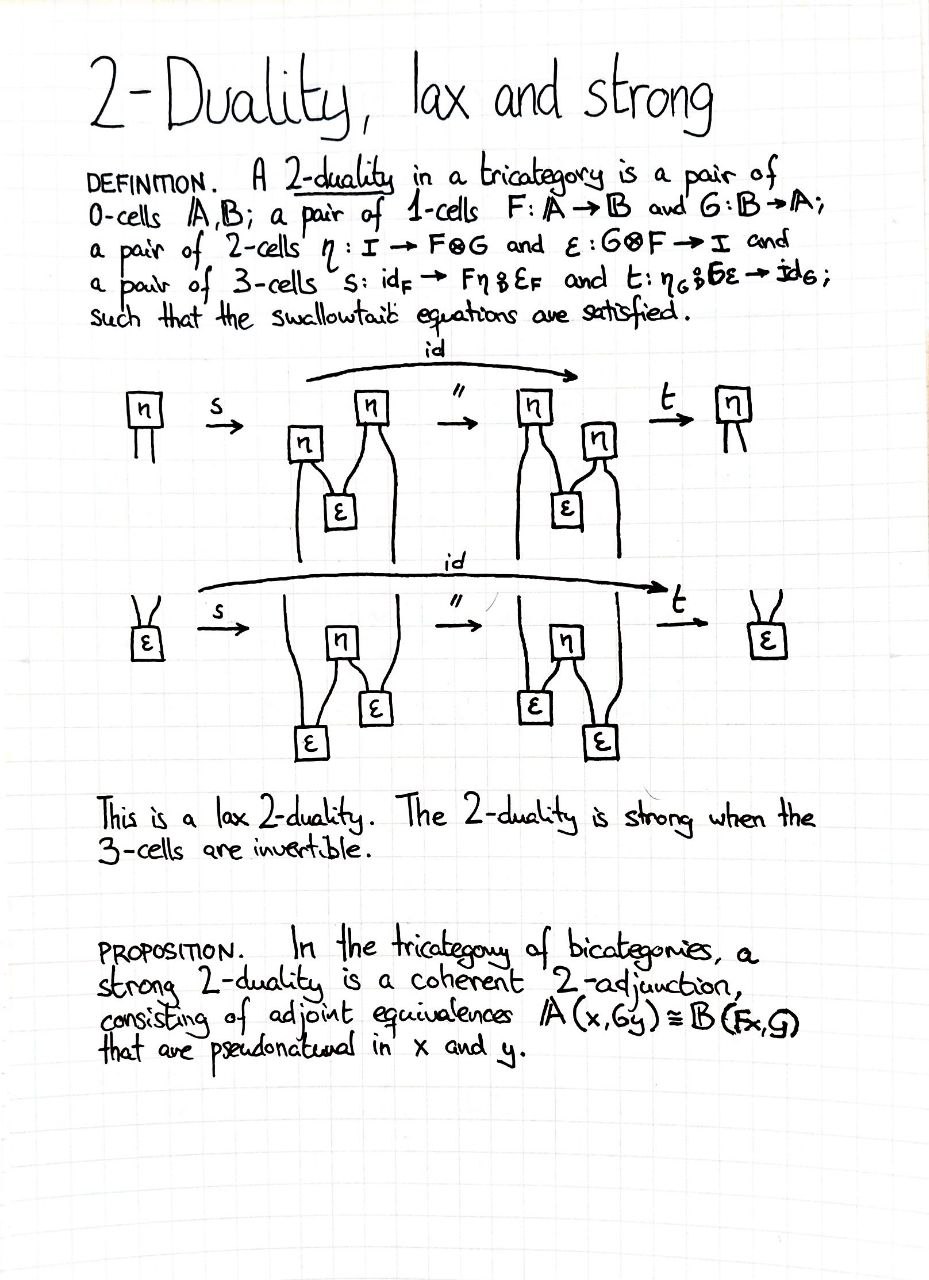 2-Duality, lax and strong
DEFINITION. A 2-duality in a tricategory is a pair of
0-cells 𝔸,𝔹; a pair of 1-cells F: 𝔸 → 𝔹 and G: 𝔹 → 𝔸;
a pair of 2-cells η : I → F⊗G and ε : G⊗F → I and
a pair of 3-cells s: id_F → Fη ⨾ ε_F and t: η_G ⨾ Gε → id_G;
such that the swallowtail equations are satisfied.
id
η s η η = η η t η
ε ε
id
ε s η = η t ε
ε ε ε ε
This is a lax 2-duality. The 2-duality is strong when the
3-cells are invertible.
PROPOSITION. In the tricategory of bicategories, a
strong 2-duality is a coherent 2-adjunction,
consisting of adjoint equivalences 𝔸(x,Gy) ≅ 𝔹(Fx,y)
that are pseudonatural in x and y.